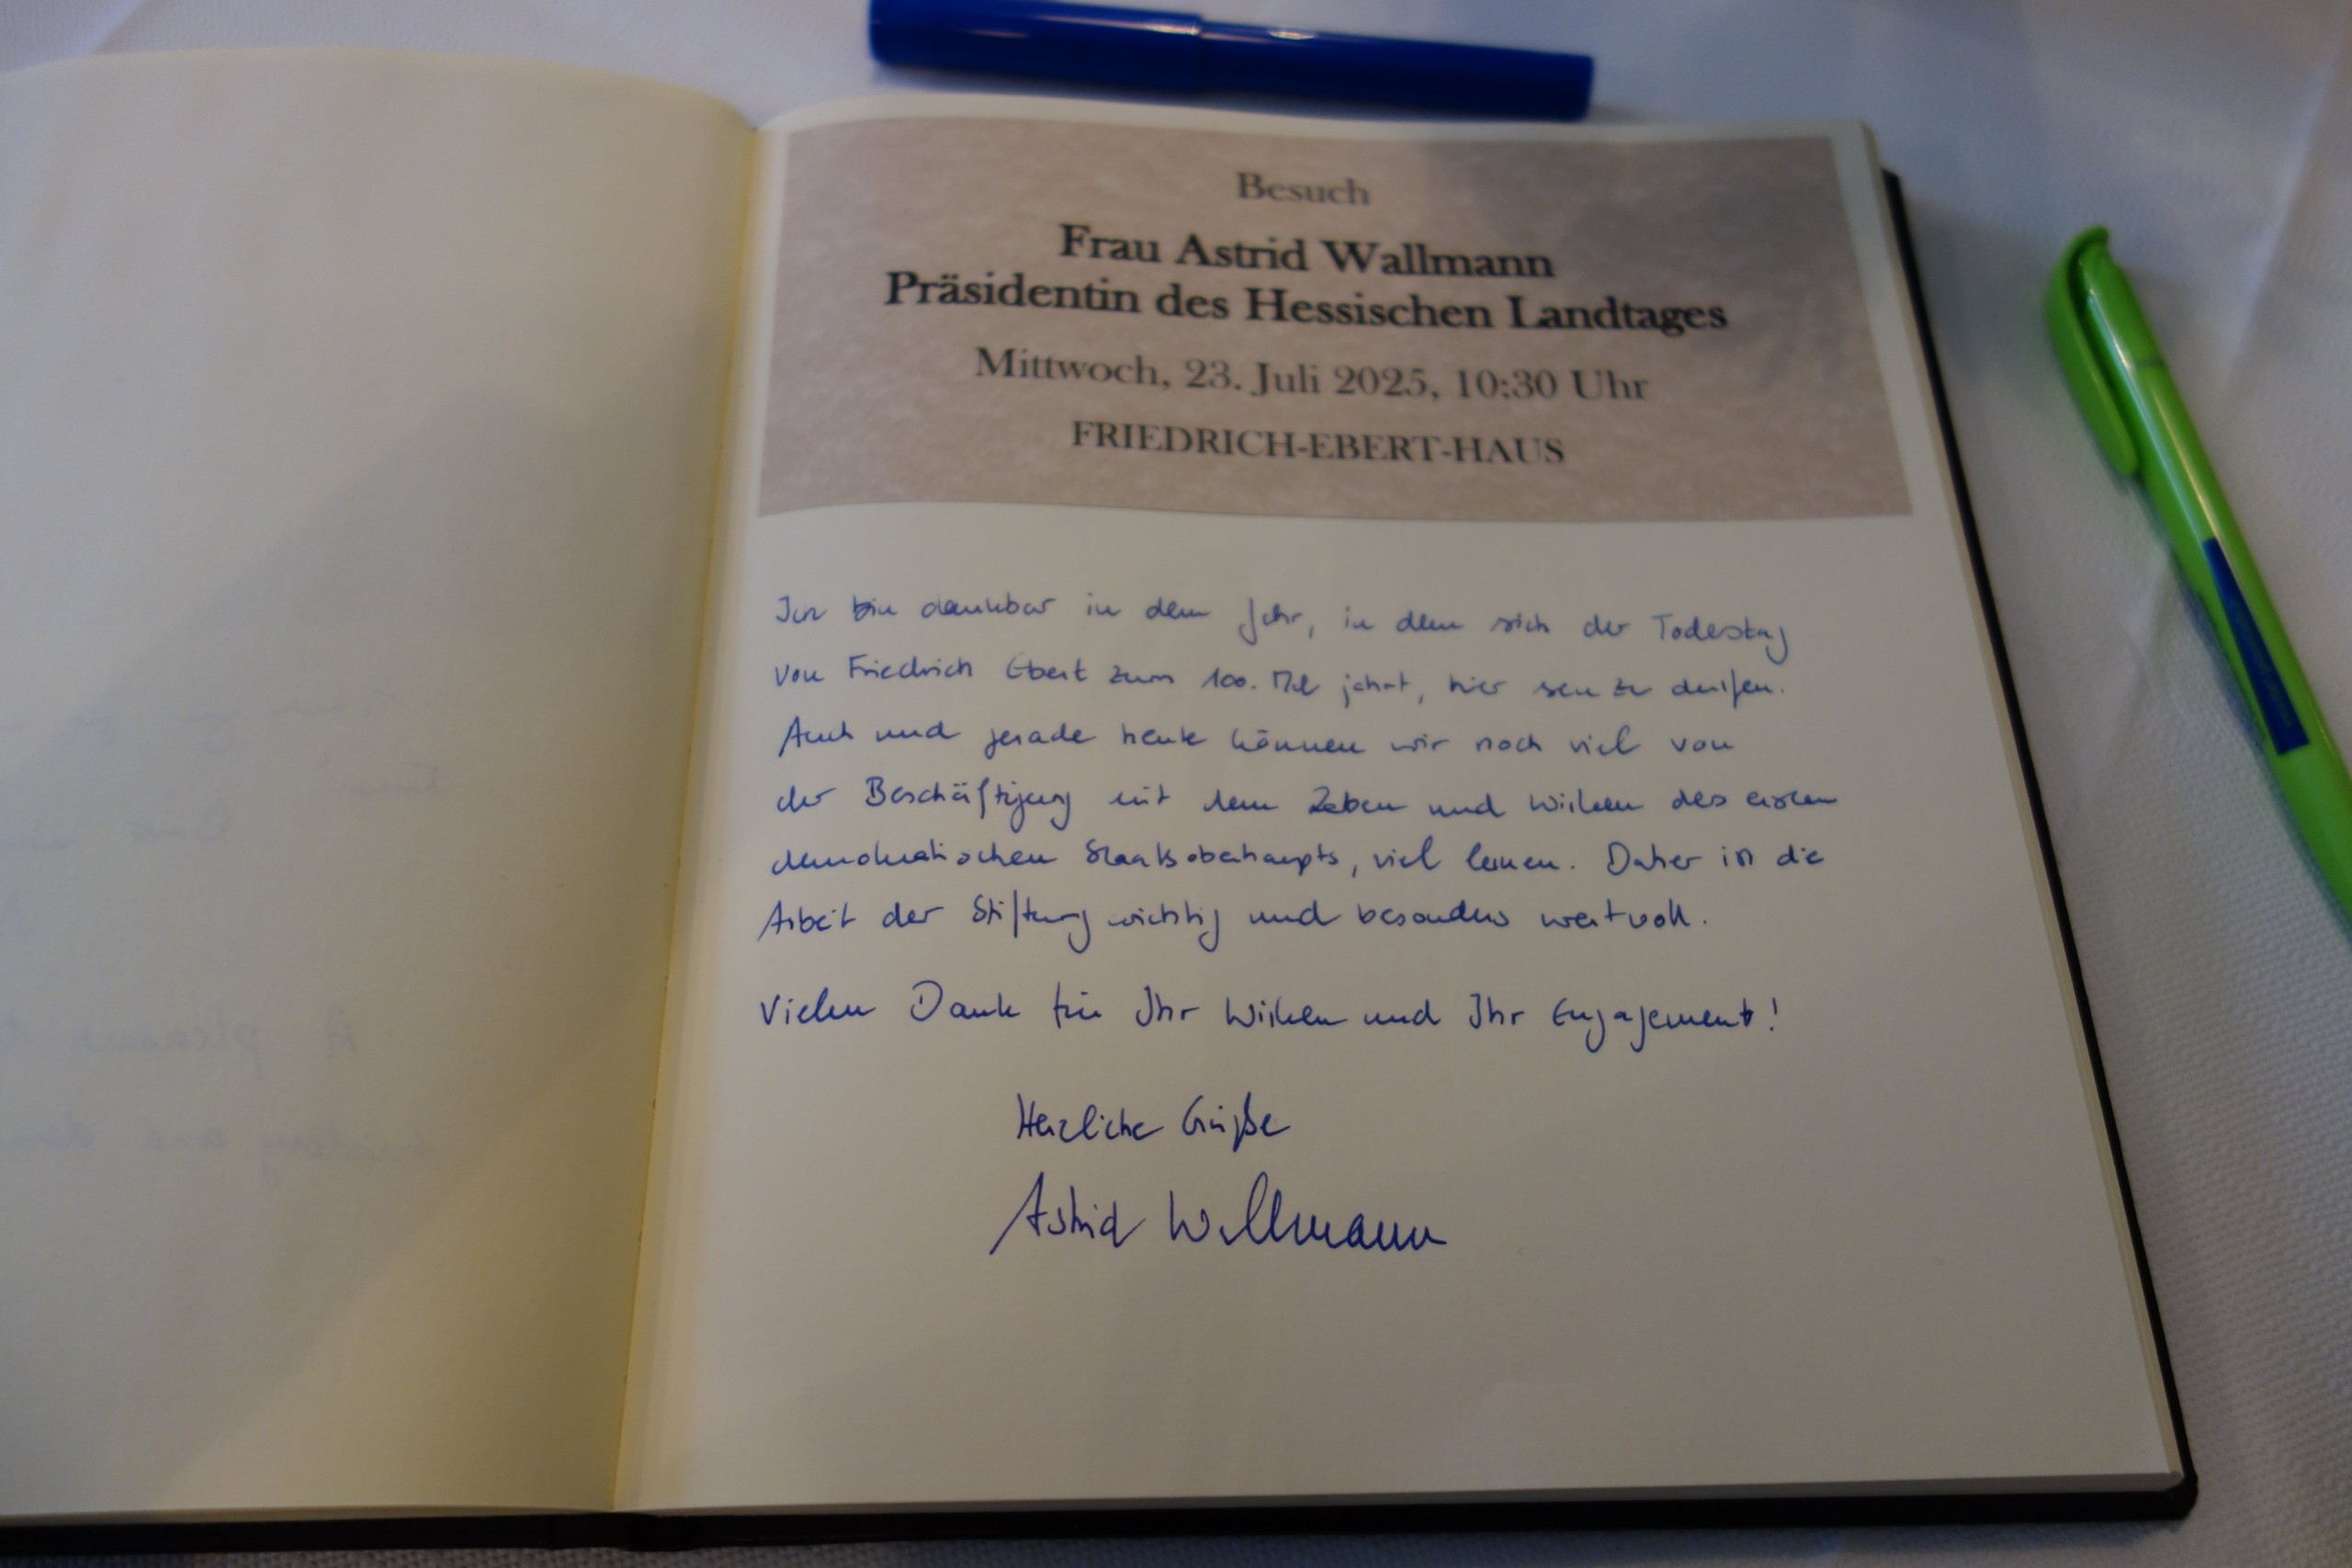 Besuch
Frau Astrid Wallmann
Präsidentin des Hessischen Landtages
Mittwoch, 23. Juli 2025, 10:30 Uhr
FRIEDRICH-EBERT-HAUS
Ich bin dankbar in dem Jahr, in dem sich der Todestag
von Friedrich Ebert zum 100. Mal jährt, hier sein zu dürfen.
Auch und gerade heute können wir noch viel von
der Beschäftigung mit dem Leben und Wirken des ersten
demokratischen Staatsoberhaupts, viel lernen. Daher ist die
Arbeit der Stiftung wichtig und besonders wertvoll.
Vielen Dank für Ihr Wirken und Ihr Engagement!
Herzliche Grüße
Astrid Wallmann